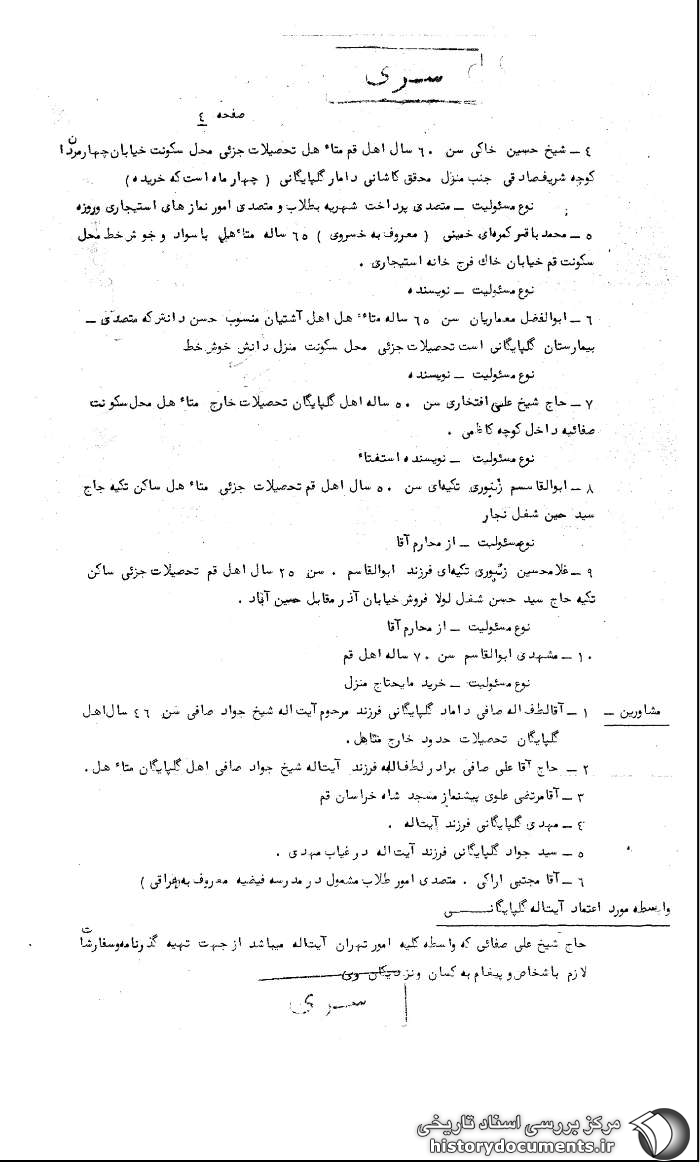 سری
صفحه ٤
٤ ـ شیخ حسین خاکی سن ٦٠ سال اهل قم متاٴهل تحصیلات جزئی محل سکونت خیابان چهارمردان
کوچه شریف صادقی جنب منزل محقق کاشانی دامار گلپایگانی ( چهار ماه است که خریده )
نوع مسئولیت ـ متصدی پرداخت شهریه بطلاب و متصدی امور نماز های استیجاری وروزه
٥ ـ محمد باقر کمره‌ای خمینی ( معروف به خسروی ) ٦٥ ساله متاٴهل باسواد و خوش خط محل
سکونت قم خیابان خاك فرج خانه استیجاری .
نوع مسئولیت ـ نویسنده
٦ ـ ابوالفضل معماریان سن ٦٥ ساله متاٴهل اهل آشتیان منسوب حسن دانش که متصدی ـ
بیمارستان گلپایگانی است تحصیلات جزئی محل سکونت منزل دانش خوش خط
نوع مسئولیت ـ نویسنده
٧ ـ حاج شیخ علی افتخاری سن ٥٠ ساله اهل گلپایگان تحصیلات خارج متاٴهل محل سکونت
صفائیه داخل کوچه کاظمی .
نوع مسئولیت ـ نویسنده استفتاٴ
٨ ـ ابوالقاسم زنبوری تکیه‌ای سن ٥٠ سال اهل قم تحصیلات جزئی متاٴهل ساکن تکیه حاج
سید حسن شغل نجار
نوع مسئولیت ـ از محارم آقا
٩ ـ غلامحسین زنبوری تکیه‌ای فرزند ابوالقاسم . سن ٢٥ سال اهل قم تحصیلات جزئی ساکن
تکیه حاج سید حسن شغل لولا فروش خیابان آذر مقابل حسین آباد .
نوع مسئولیت ـ از محارم آقا
١٠ ـ مشهدی ابوالقاسم سن ٧٠ ساله اهل قم
نوع مسئولیت ـ خرید مایحتاج منزل
مشاورین ـ ١ ـ آقا لطف اله صافی داماد گلپایگانی فرزند مرحوم آیت اله شیخ جواد صافی سن ٤٦ سال اهل
گلپایگان تحصیلات حدود خارج متاٴهل .
٢ ـ حاج آقا علی صافی برادر لطف اله فرزند آیت‌اله شیخ جواد صافی اهل گلپایگان متاٴهل .
٣ ـ آقا مرتضی علوی پیشنماز مسجد شاه خراسان قم
٤ ـ مهدی گلپایگانی فرزند آیت‌اله .
٥ ـ سید جواد گلپایگانی فرزند آیت اله در غیاب مهدی .
٦ ـ آقا مجتبی اراکی . متصدی امور طلاب مشمول در مدرسه فیضیه معروف به عراقی )
واسطه مورد اعتماد آیت‌اله گلپایگانـــــی
حاج شیخ علی صفائی که واسطه کلیه امور تهران آیت‌اله میباشد از جهت تهیه گذرنامه و سفارشات
لازم باشخاص و پیغام به کسان و نزدیکان وی
سری
مرکز بررسی اسناد تاریخی
historydocuments.ir